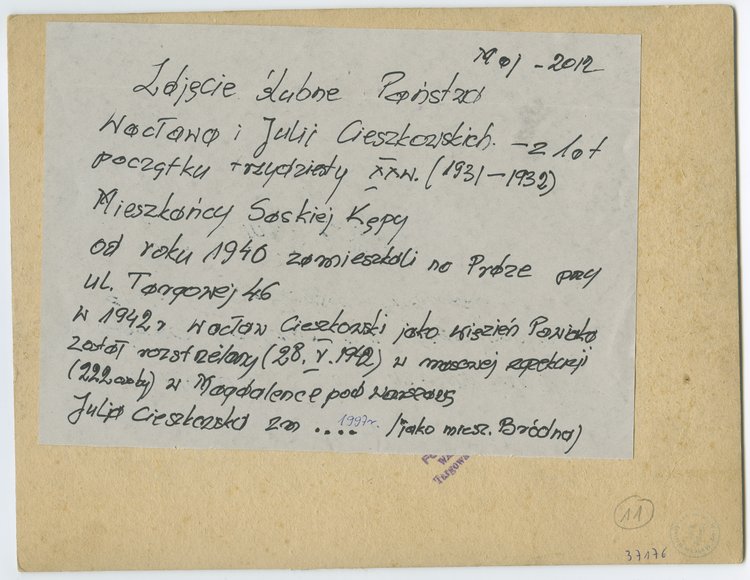 Maj - 2012
Zdjęcie ślubne Państwa
Wacława i Julii Cieszkowskich. - z lat
początku trzydziesty XXw. (1931-1932)
Mieszkańcy Saskiej Kępy
od roku 1940 zamieszkali na Pradze przy
ul. Targowej 46
w 1942r Wacław Cieszkowski jako więzień Pawiaka
został rozstrzelany (28. V. 1942) w masowej egzekucji
(222 osoby) w Magdalence pod Warszawą
Julia Cieszkowska zm .... 1997r. /jako miesz. Bródna)
Targow
11
37176